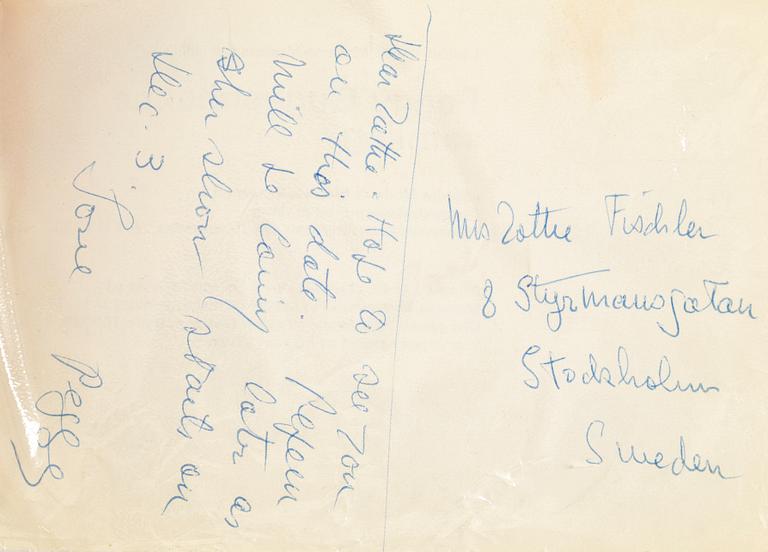 Dear Lotte. Hope to see you
on this date. Pegeen
will be coming later as
her show starts on
Dec. 3
Love
Peggy
Mrs Lotte Fischler
8 Styrmansgatan
Stockholm
Sweden